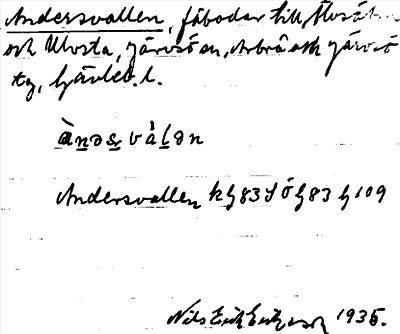 Andersvallen, fäbodar till
och Ulvsta, Järvsö sn, Arbrå och Järvsö
tg, Gävleb. l.
ànəs̩ vålən
Andersvallen kg 83 SÖ g 83 g 109
Nils Erik 1935.